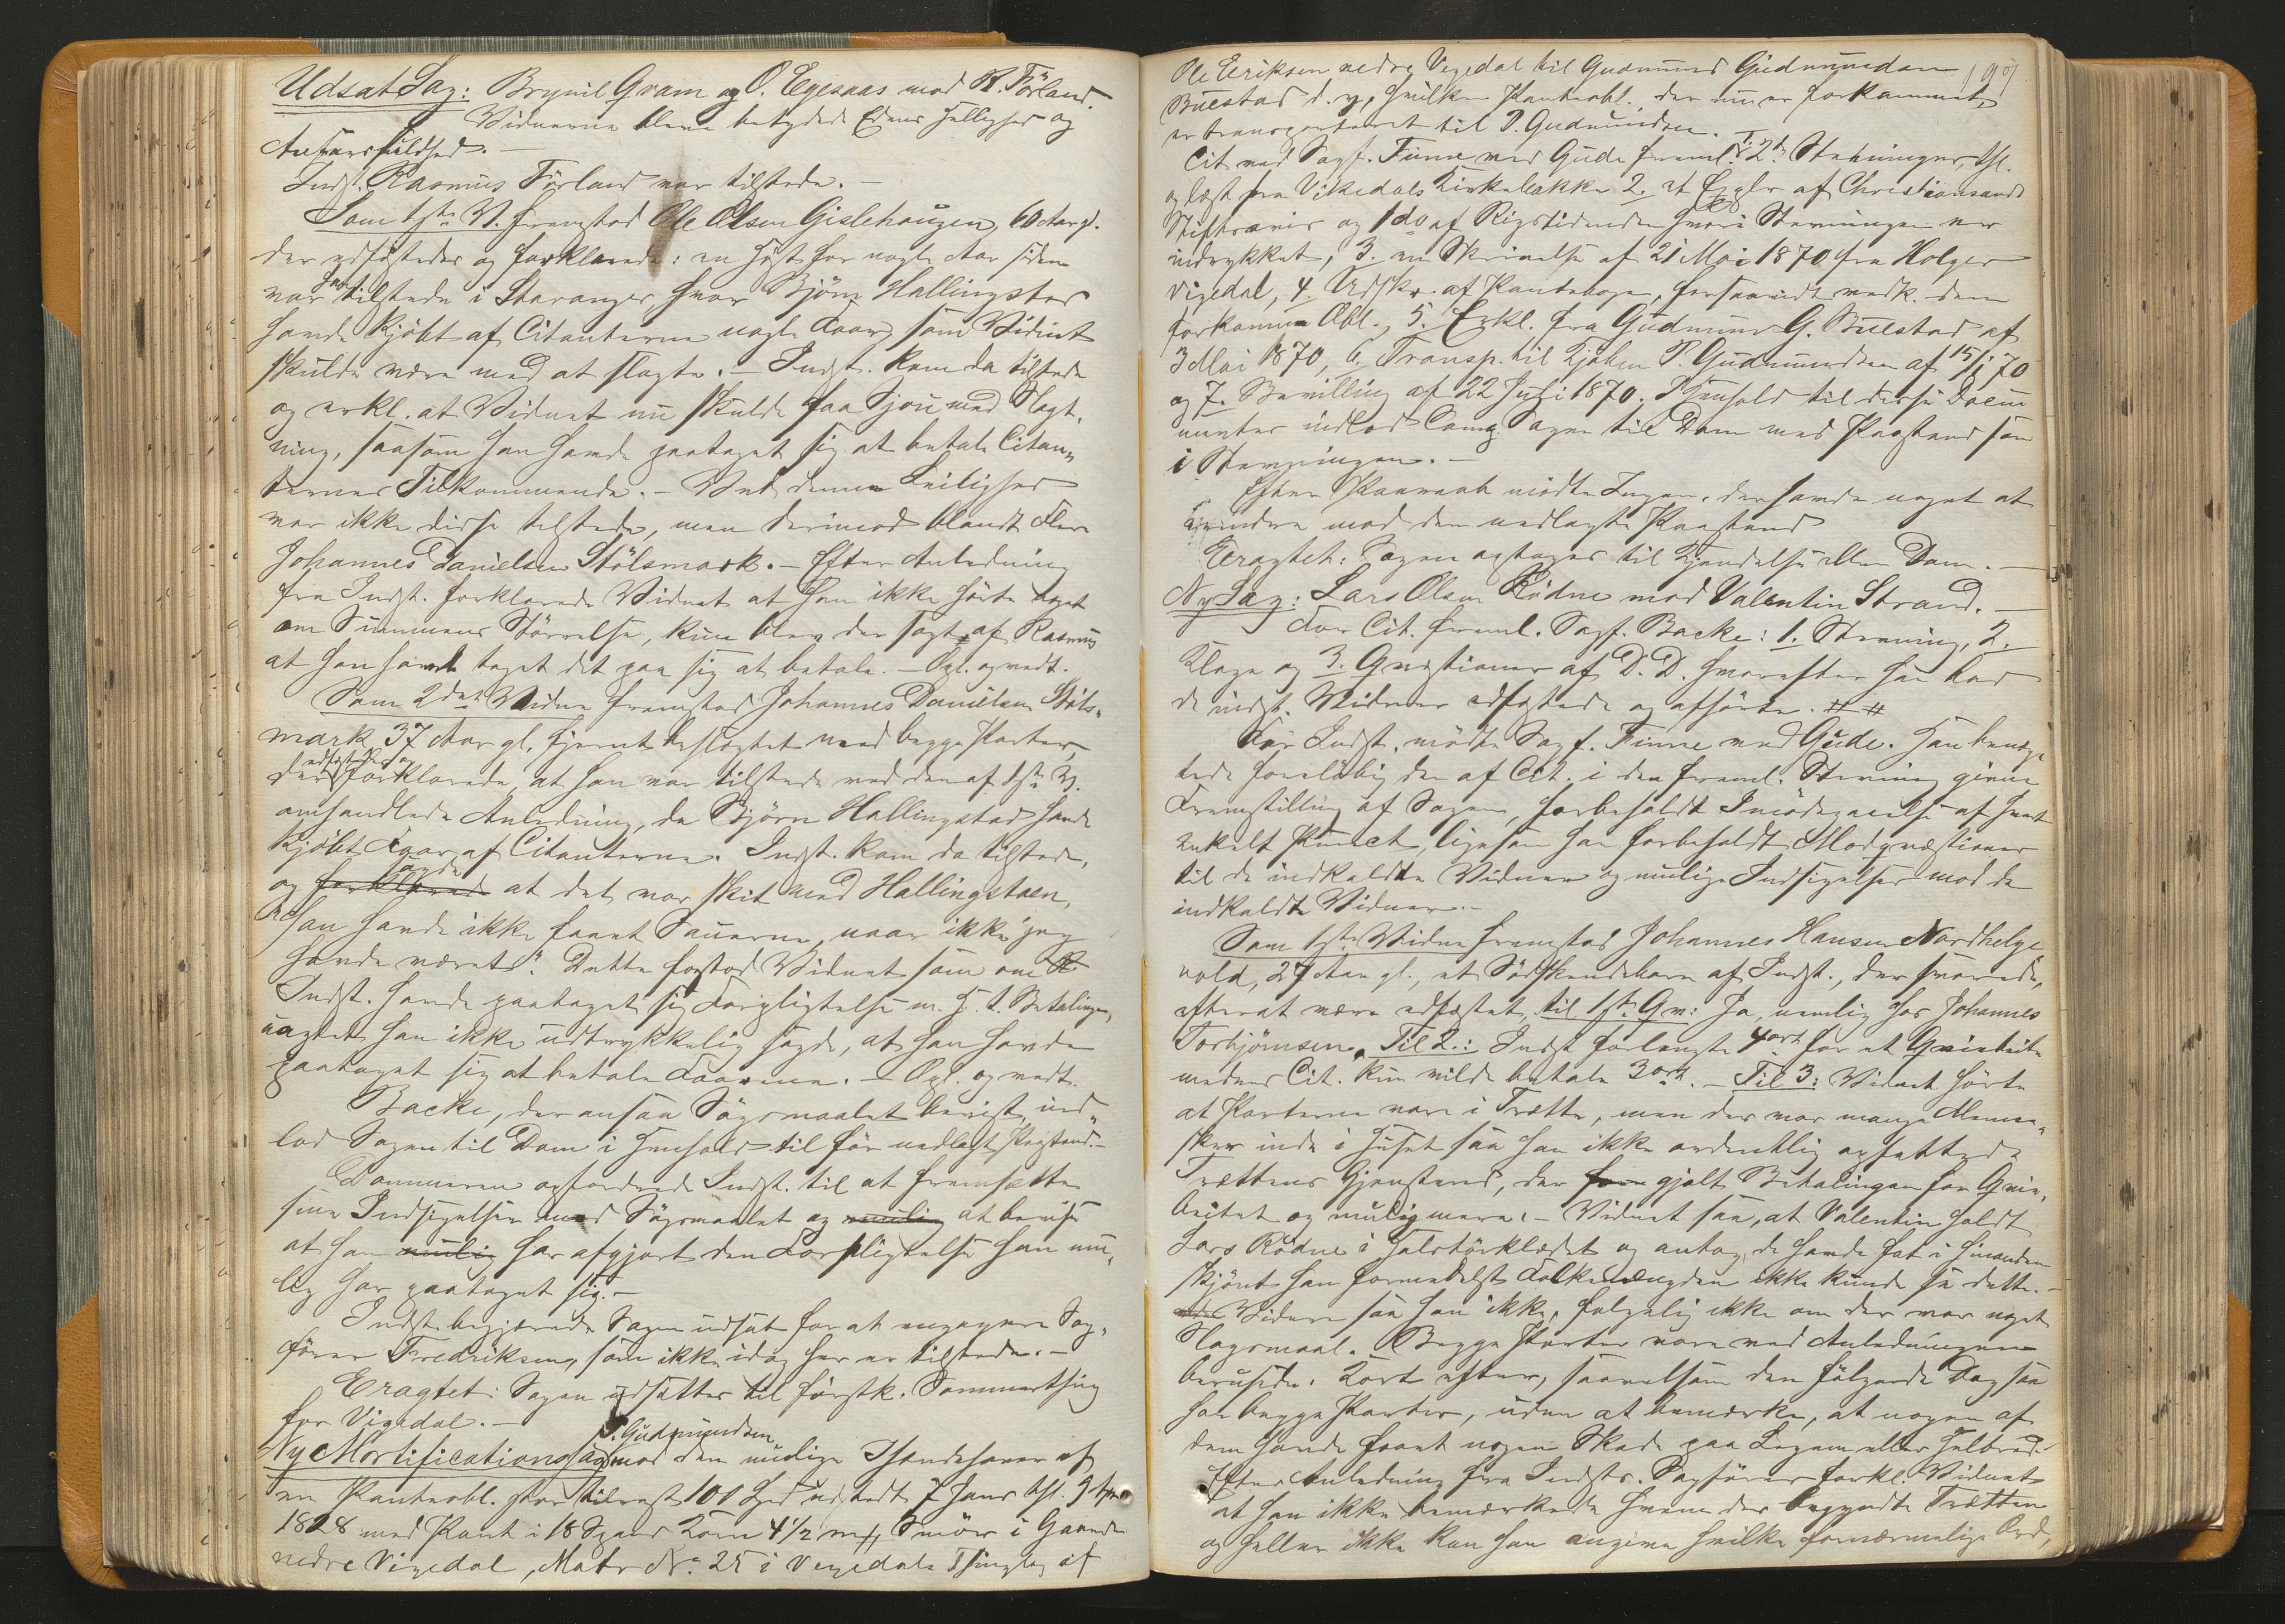 Udsat Sag: Brynil Gram og O. Egesaas mod R. Förland.
Vidnerne bleve betydede Edens Hellighed og
Ansvarsfuldhed. —
Indst. Rasmus Förland var tilstede. —
Som 1ste V. fremstod Ole Olsen Gislehaugen, 60 Aar gl.
der edfæstedes og forklarede: en Höst for nogle Aar siden
var han tilstede i Stavanger, hvor Björn Hallingstad
havde kjöbt af Citanterne nogle Faar, som Vidnet
skulde være med at slagte. — Indst. kom da tilstede
og erkl. at Vidnet nu skulde faa Sjou med Slagt-
ning, saasom han havde paataget sig at betale Citan-
ternes Tilkommende. — Ved denne Leilighed
var ikke disse tilstede, men derimod blandt Flere
Johannes Danielsen Stölsmark. — Efter Anledning
fra Indst. forklarede Vidnet at han ikke hörte Noget
om Summens Störrelse, kun blev der sagt af Rasmus
at han havde taget det paa sig at betale. — Opl. og vedt.
Som 2det Vidne fremstod Johannes Danielsen Stöls-
mark 37 Aar gl. fjernt beslægtet med begge Parter,
der edfæstedes og forklarede, at han var tilstede ved den af 1ste V.
omhandlede Anledning, da Björn Hallingstad havde
kjöbt Faar af Citanterne. Indst. kom da tilstede,
og forklarede sagde at det var skit med Hallingstaen,
"han havde ikke faaet Sauerne, naar ikke jeg
havde været". Dette forstod Vidnet som om R
Indst. havde paataget sig Forpligtelse m. H. t. Betalingen,
uagtet han ikke udtrykkelig sagde, at han havde
paataget sig at betale Faarene. — Opl. og vedt.
Backe, der ansaa Sögsmaalet bevist, ind-
lod Sagen til Dom i Henhold til för nedlagt Paastand. —
Dommeren opfordrede Indst. til at fremsætte
sine Indsigelser mod Sögsmaalet og mulig at bevise
at han mulig har afgjort den Forpligtelse han mu-
lig har paataget sig. —
Indst. begjærede Sagen udsat for at engagere Sag-
förer Fredriksen, som ikke idag her er tilstede. —
Eragtet: Sagen udsættes til förstk. Sommerthing
for Vigedal. —
Ny Mortificationssag P. Gudmundsen mod den mulige Ihændehaver af
en Panteobl. stor tilrest 100 Spd udstedt 7 Janr thl. 9
1828 med Pant i 18 Spand Korn 4 1/2 Smör i Gaarden
nedre Vigedal, Matr No. 25 i Vigedals Thinglag af
197
Ole Eriksen nedre Vigedal til Gudmund Gudmundsen
Buestad d. y., hvilken Panteobl. der nu er forkommet,
er transporteret til P. Gudmundsen.
Cit ved Sagf. Finne ved Gude freml. 1. 2d Stevninger, thl.
og læst fra Vikedals Kirkebakke 2. et Explr af Christiansands
Stiftsavis og 1 do af Rigstidenden hvori Stevningen var
indrykket, 3. en Skrivelse af 21 Mai 1870 fra Holger
Vigedal, 4. Udskr. af Pantebogen, forsaavidt vedk. den
forkomne Obl., 5. Erkl. fra Gudmund G. Buestad af
3 Mai 1870, 6. Transp. til P. Gudmundsen af 15/ 70
og 7. Bevilling af 22 Juli 1870. I Henhold til disse Docu-
menter indlod Comp Sagen til Dom med Paastand som
i Stevningen. —
Efter Paaraab mödte Ingen, der havde noget at
erindre mod den nedlagte Paastand
Eragtet: Sagen optages til Kjendelse eller Dom. —
Ny Sag: Lars Olsen Rödne mod Valentin Strand. —
For Cit. freml. Sagf. Backe: 1. Stevning, 2.
Klage og 3. Qvæstioner af D. D. hvorefter han bad
de indst. Vidner edfæstede og afhörte.
For Indst. mödte Sagf. Finne ved Gude. Han benæg-
tede foreløbig den af Cit. i den freml. Stevning givne
Fremstilling af Sagen, forbeholdt Imödegaaelse af hvert
enkelt Punct, ligesom han forbeholdt Modqvæstioner
til de indkaldte Vidner og mulige Indsigelser mod de
indkaldte Vidner. —
Som 1ste Vidne fremstod Johannes Hansen Nordhelge
vold, 27 Aar gl., et Södskendebarn af Indst., der svarede,
efterat være edfæstet, til 1ste Qv: Ja, nemlig hos Johannes
Torbjörnsen. Til 2.: Indst. forlangte 4 ort for et
medens Cit. kun vilde betale 3 ort. — Til 3: Vidnet hörte
at Parterne vare i Trætte, men der var mange Menne-
sker inde i Huset saa han ikke ordentlig opfattede
Trættens Gjenstand, der gjalt Betalingen for
og mulig mere. — Vidnet saa, at Valentin holdt
Lars Rödne i Halstörklædet og antog, de havde fat i hinanden
skjönt han formedelst Folkemængden ikke kunde se dette. —
Videre saa han ikke, fölgelig ikke om der var noget
Slagsmaal. Begge Parter vare ved Anledningen
berusede. Kort efter, saavelsom den fölgende Dag saa
han begge Parter, uden at bemærke, at nogen af
dem havde faaet nogen Skade paa Legem eller Helbred.
Efter Anledning fra Indsts. Sagförer forkl. Vidnet
at han ikke bemærkede hvem der begyndte Trætten
og heller ikke kan han angive hvilke fornærmelige Ord,